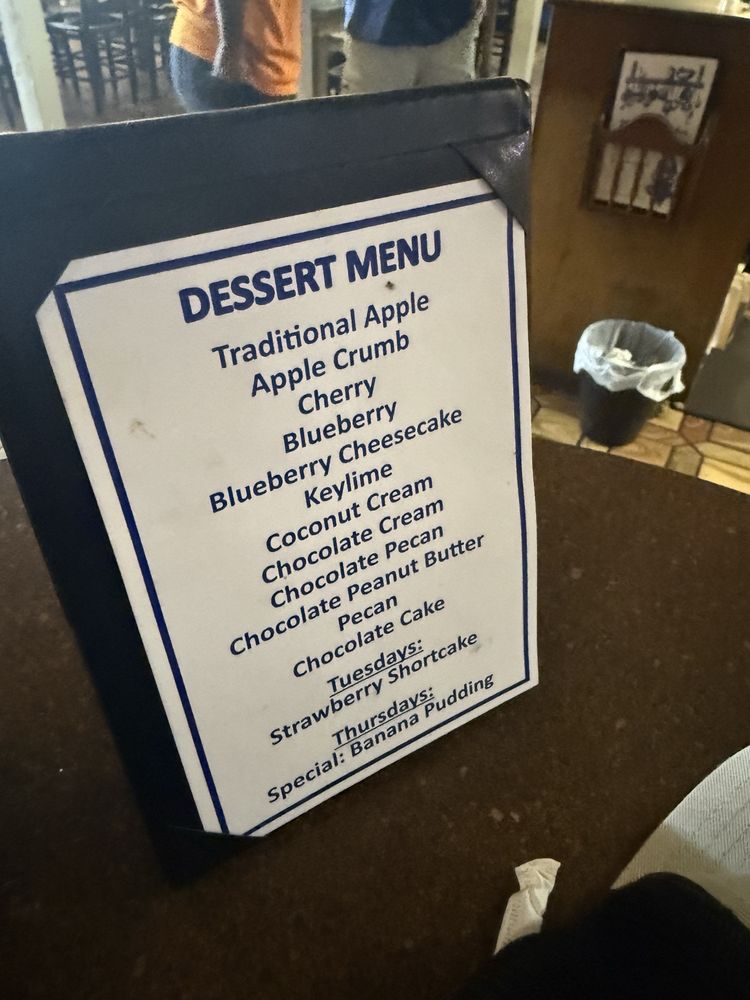 DESSERT MENU
Traditional Apple
Apple Crumb
Cherry
Blueberry
Blueberry Cheesecake
Keylime
Coconut Cream
Chocolate Cream
Chocolate Pecan
Chocolate Peanut Butter
Pecan
Chocolate Cake
Tuesdays:
Strawberry Shortcake
Thursdays:
Special: Banana Pudding